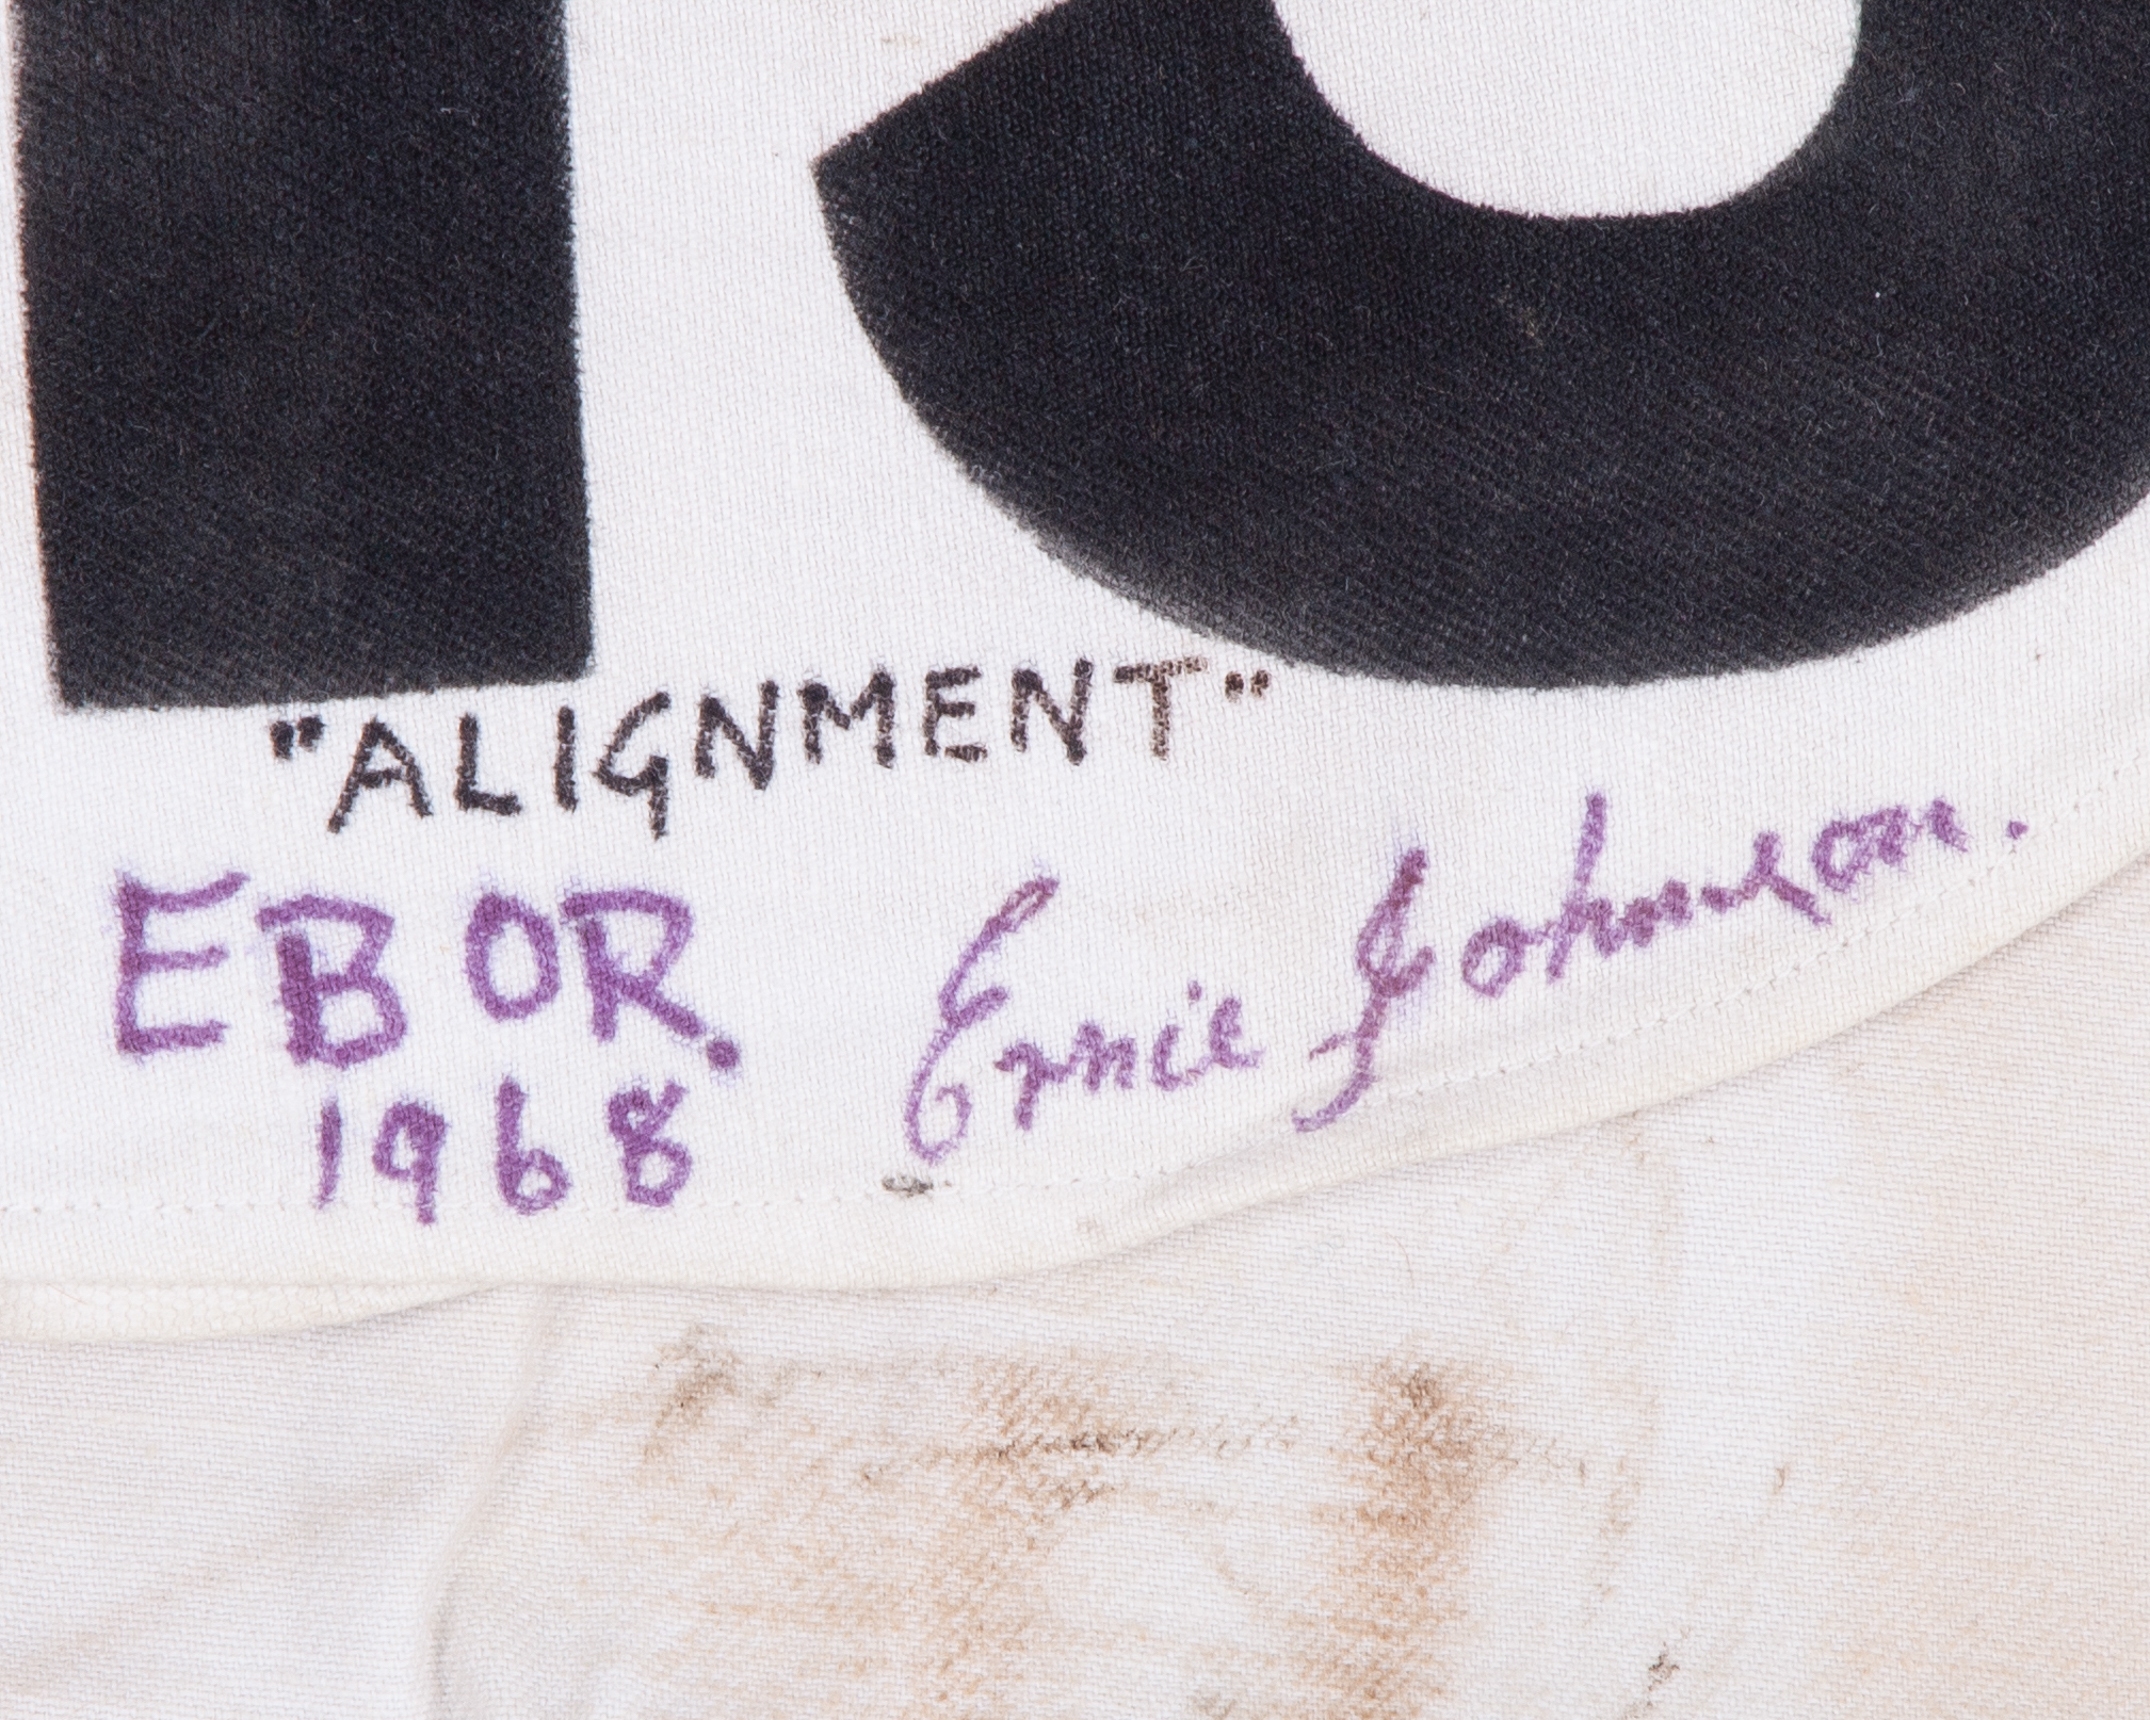 "ALIGNMENT"
EBOR.
1968
Ernie Johnson.